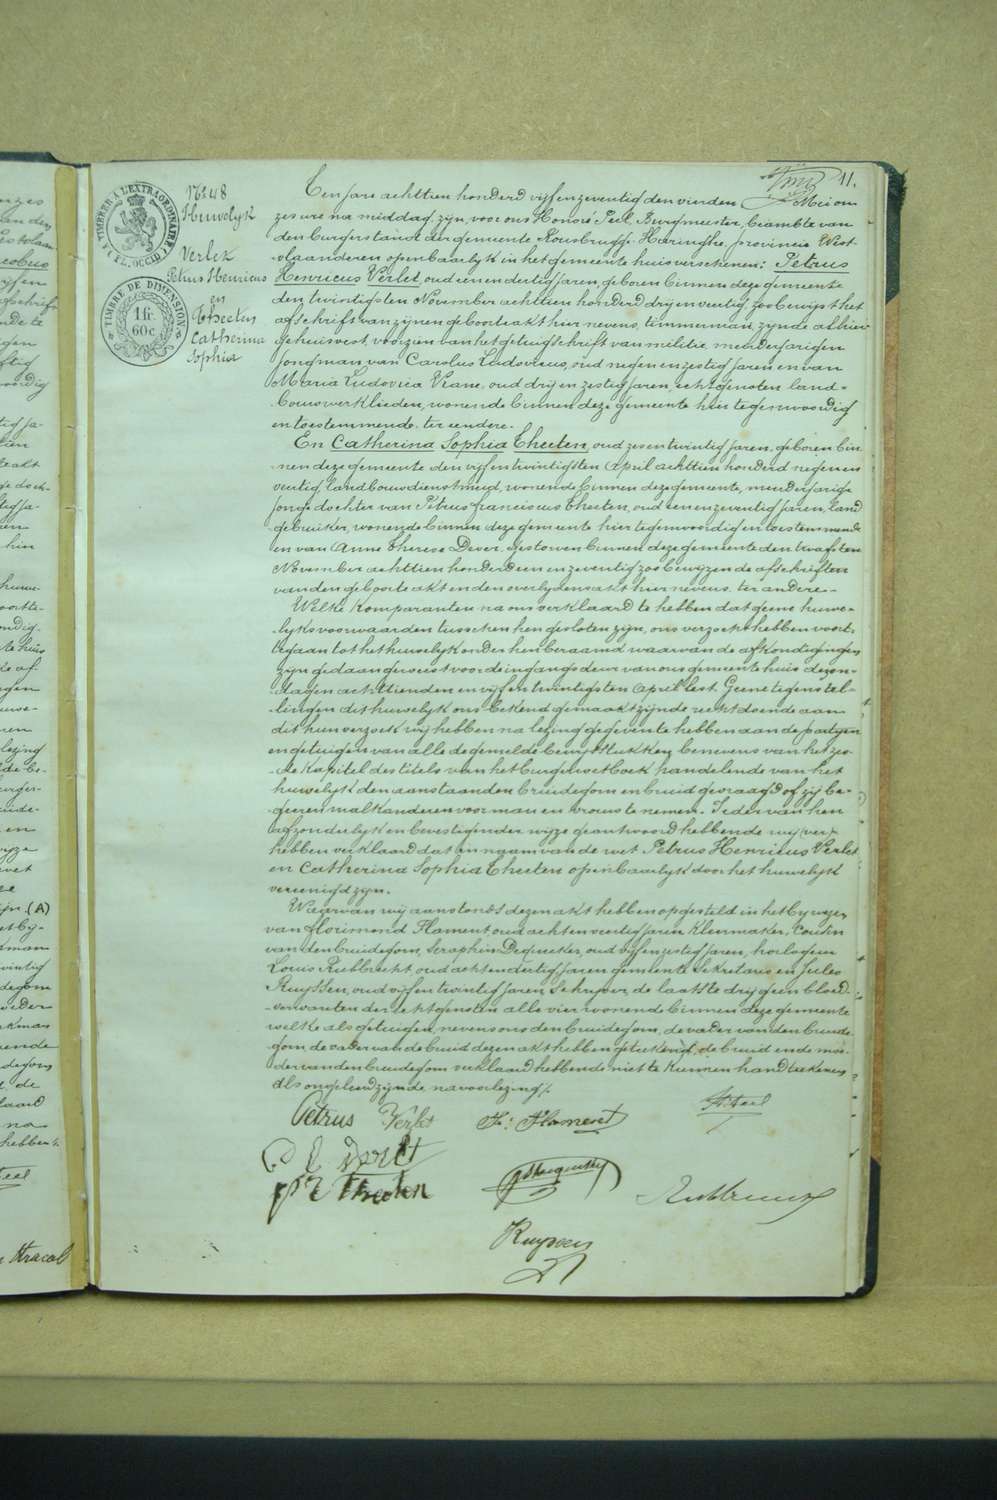 11.
TIMBRE A L'EXTRAORDINAIRE
FL. OCCID.
TIMBRE DE DIMENSION
1 fr.
60 c.
No 48
Huwelyk
Verlet
Petrus Henricus
en
Theeten
Catherina
Sophia
Een jare achttien honderd vyf en zeventig den vierden Mei om
zes ure na middag, zyn, voor ons Honoré Peel Burgmeester, beambte van
den burgerstand der gemeente Rousbrugge-Haringhe, provincie West-
vlaanderen openbaarlyk in het gemeente huis verschenen: Petrus
Henricus Verlet, oud een en dertig jaren, geboren binnen deze gemeente
den twintigsten November achttien honderd dry en veertig zoo bewyst het
afschrift van zynen geboorteakt hier nevens, timmerman, zynde alhier
gehuisvest, voorzien van het getuigschrift van militie, meerderjarigen
jongman van Carolus Ludovicus, oud negen en zestig jaren en van
Maria Ludovica Viane, oud dry en zestig jaren, echtgenoten land-
bouwwerklieden, wonende binnen deze gemeente hier tegenwoordig
en toestemmende, ter eendere.
En Catherina Sophia Theeten, oud zes en twintig jaren, geboren bin
nen deze gemeente den vyf en twintigsten April achttien honderd negen en
veertig, landbouwdienstmeid, wonende binnen deze gemeente, meerderjarige
jonge dochter van Petrus Franciscus Theeten, oud een en zeventig jaren, land
gebruiker, wonende binnen deze gemeente hier tegenwoordig en toestemmende
en van Anne Therese Dever, gestorven binnen deze gemeente den twaalfsten
November achttien honderd een en zeventig zoo bewyzen de afschriften
van den geboorteakt en den overlydensakt hier nevens, ter andere.-
Welke komparanten na ons verklaard te hebben dat geene huwe-
lyksvoorwaarden tusschen hen gesloten zyn, ons verzocht hebben voort
te gaan tot het huwelyk onder hen beraamd waarvan de afkondigingen
zyn gedaan geweest voor de ingangsdeur van ons gemeente huis de zon-
dagen achttienden en vyf en twintigsten April lest. Geene tegenstel-
lingen dit huwelyk ons bekend gemaakt zynde recht doende aan
dit hun verzoek wy hebben na lezing gegeven te hebben aan de partyen
en getuigen van alle de gemelde bewysstukken, benevens van het zes-
de kapitel des titels van het burger wetboek handelende van het
huwelyk den aanstaanden bruidegom en bruid gevraagd of zy be-
geeren malkanderen voor man en vrouw te nemen. Ieder van hen
afzonderlyk en bevestigender wyze geantwoord hebbende wy
hebben verklaard dat in naam van de wet Petrus Henricus Verlet
en Catherina Sophia Theeten openbaarlyk door het huwelyk
vereenigd zyn.
Waervan wy aanstonds dezen akt hebben opgesteld in het bywezen
van Florimond Flament, oud acht en veertig jaren, kleermaker, kousin
van den bruidegom, Seraphin Dequeker, oud vyf en zestig jaren, horlogiem
Louis Rubbrecht, oud acht en dertig jaren gemeente Sekretaris en Jules
Ruyssen, oud vyf en twintig jaren, Schryver, de laatste dry geen bloed-
verwanten der echtgenoten alle vier wonende binnen deze gemeente
welke als getuigen, nevens ons den bruidegom, de vader van den bruide
gom, de vader van de bruid dezen akt hebben geteekend, de bruid en de moe-
der van den bruidegom verklaard hebbende niet te kunnen handteekenen
als ongeleerd zynde na voorlezing.
Petrus Verlet
F: Flament
H. Peel
C L Verlet
P F Theeten
Ruyssen